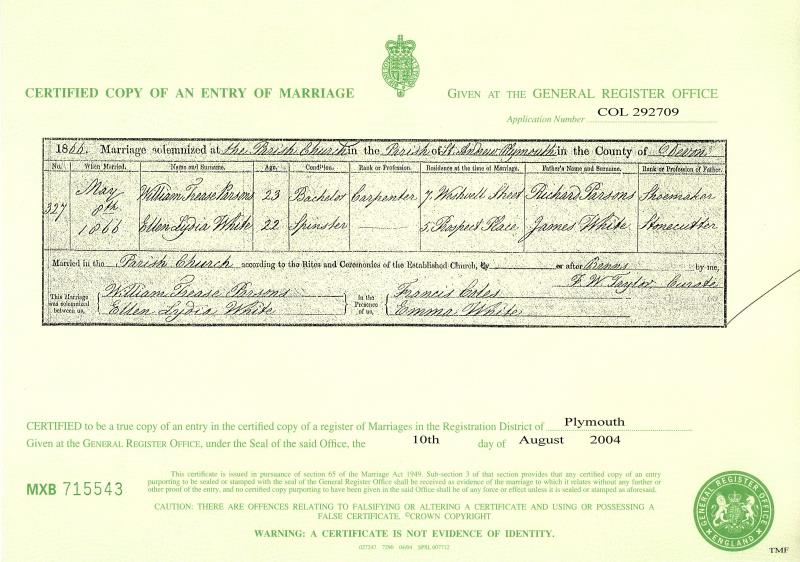 CERTIFIED COPY OF AN ENTRY OF MARRIAGE
GIVEN AT THE GENERAL REGISTER OFFICE
Application Number COL 292709
1866. Marriage solemnized at the Parish Church in the Parish of St. Andrew Plymouth in the County of Devon
No. When Married. Name and Surname. Age. Condition. Rank or Profession. Residence at the time of Marriage. Father's Name and Surname. Rank or Profession of Father.
327 May 8th 1866
William Trease Parsons 23 Bachelor Carpenter 7, Westwell Street Richard Parsons Shoemaker
Ellen Lydia White 22 Spinster 5, Prospect Place James White Stonecutter
Married in the Parish Church according to the Rites and Ceremonies of the Established Church, by or after Banns by me,
F. W. Taylor, Curate
This Marriage was solemnized between us, William Trease Parsons In the Presence of us, Francis
Ellen Lydia White Emma White
CERTIFIED to be a true copy of an entry in the certified copy of a register of Marriages in the Registration District of Plymouth
Given at the GENERAL REGISTER OFFICE, under the Seal of the said Office, the 10th day of August 2004
MXB 715543
This certificate is issued in pursuance of section 65 of the Marriage Act 1949. Sub-section 3 of that section provides that any certified copy of an entry
purporting to be sealed or stamped with the seal of the General Register Office shall be received as evidence of the marriage to which it relates without any further or
other proof of the entry, and no certified copy purporting to have been given in the said Office shall be of any force or effect unless it is sealed or stamped as aforesaid.
CAUTION: THERE ARE OFFENCES RELATING TO FALSIFYING OR ALTERING A CERTIFICATE AND USING OR POSSESSING A
FALSE CERTIFICATE. ©CROWN COPYRIGHT
WARNING: A CERTIFICATE IS NOT EVIDENCE OF IDENTITY.
GENERAL REGISTER OFFICE
ENGLAND
TMF